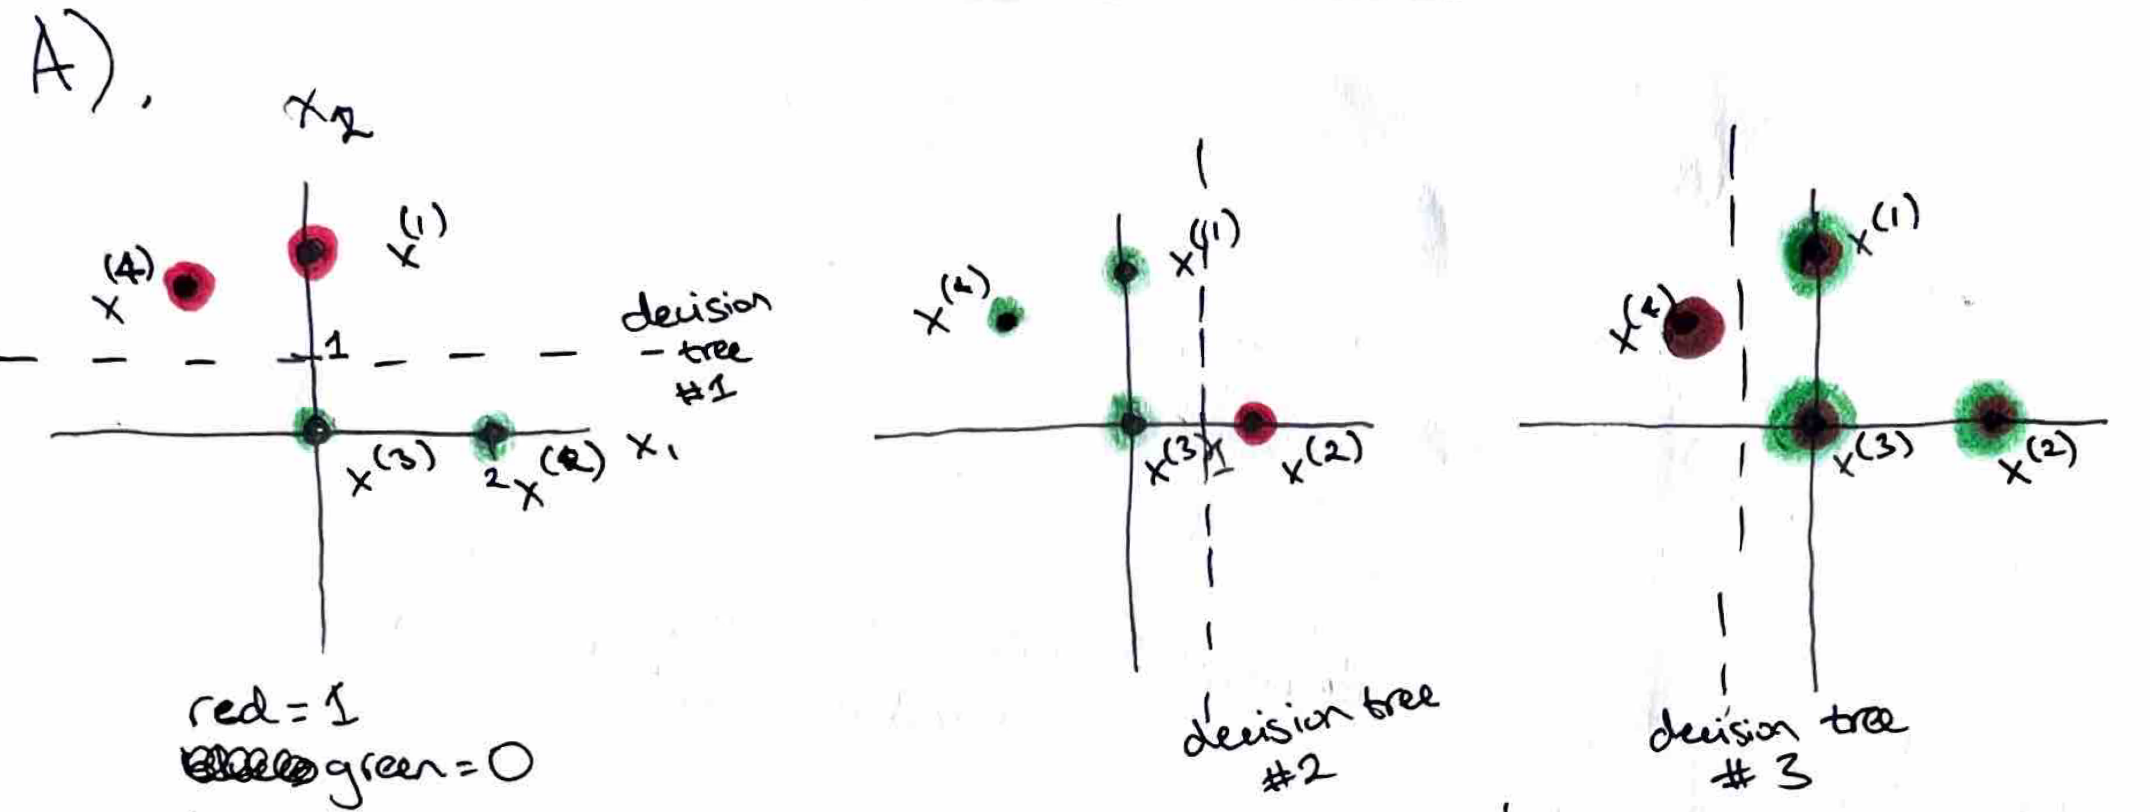 A).
x₂
x⁽⁴⁾
x⁽¹⁾
1
decision
tree
#1
x⁽³⁾
2
x⁽²⁾
x₁
red = 1
green = 0
x⁽⁴⁾
x⁽¹⁾
x⁽³⁾
1
x⁽²⁾
decision tree
#2
x⁽⁴⁾
x⁽¹⁾
x⁽³⁾
x⁽²⁾
decision tree
# 3